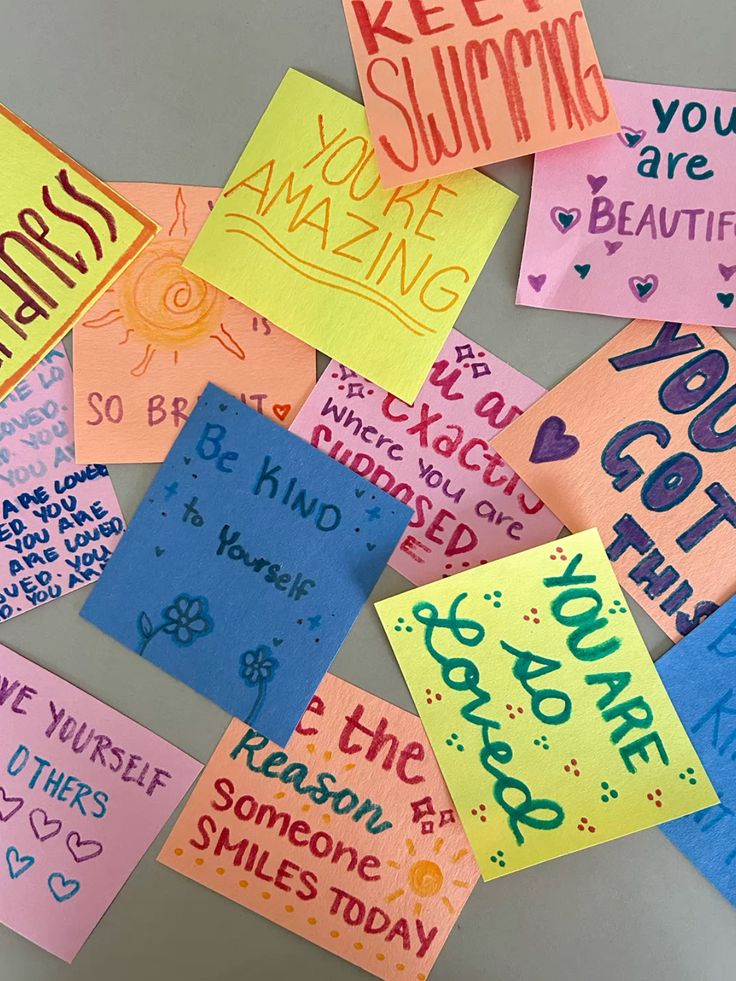 KEEP
SWIMMING
YOU
are
BEAUTIF
YOU'RE
AMAZING
ndness
IS
SO BR
HT
U a
Exactly
Where you are
SUPPOSED
YOU
GOT
THIS
LOVED. YOU
ARE LOVED
YOU ARE
ARE LOVED
YOU ARE
Be KIND
to Yourself
YOU ARE
so
Loved
VE YOURSELF
OTHERS
e the
Reason
Someone
SMILES TODAY